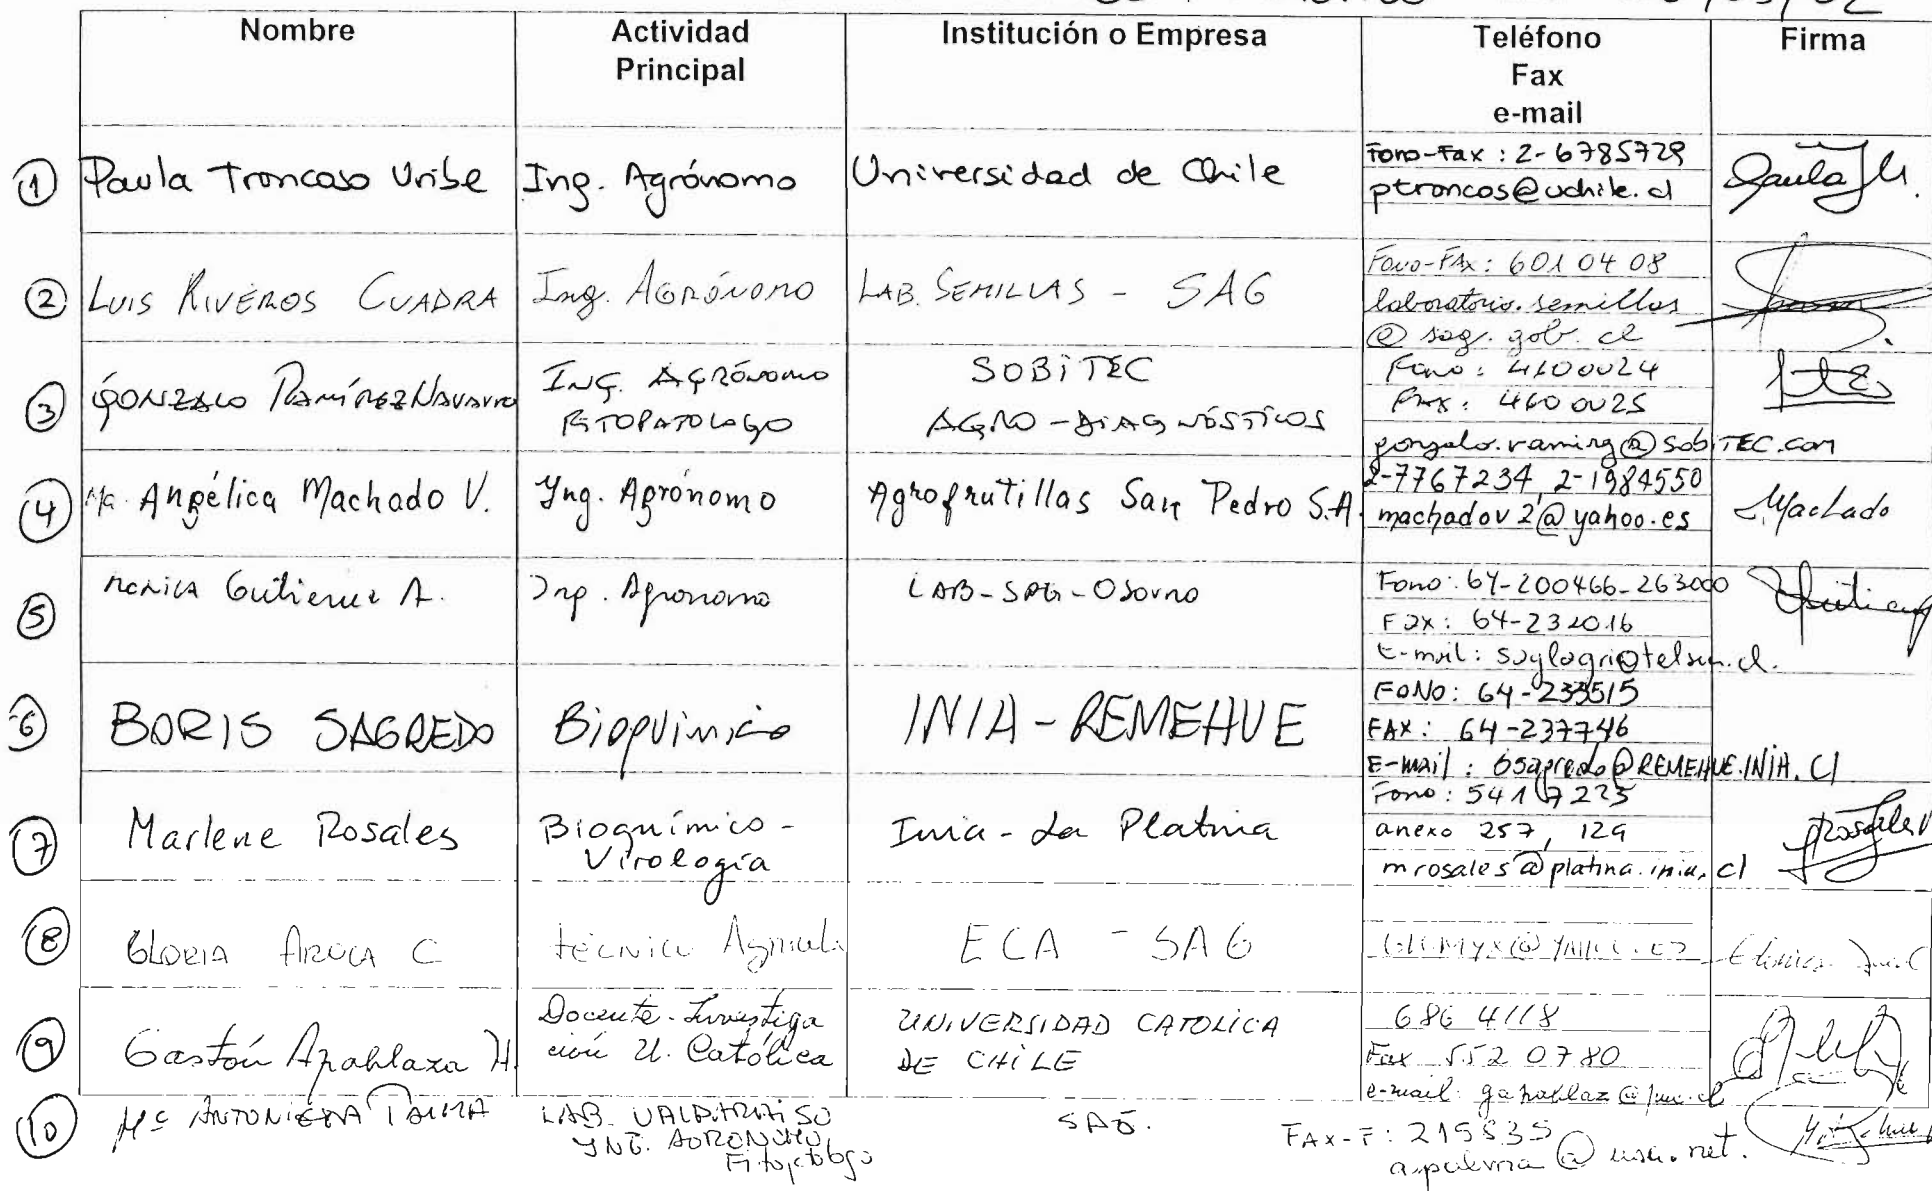 Nombre
Actividad
Principal
Institución o Empresa
Teléfono
Fax
e-mail
Firma
1 Paula Troncoso Uribe
Ing. Agrónomo
Universidad de Chile
Fono-Fax : 2-6785729
ptroncos@uchile.cl
2 LUIS RIVEROS CUADRA
Ing. AGRÓNOMO
LAB. SEMILLAS - SAG
Fono-FAx: 601 04 08
laboratorio.semillas
@ sag. gob. cl
3 GONZALO RAMÍREZ NAVARRO
ING. AGRÓNOMO
FITOPATOLOGO
SOBiTEC
AGRO-DIAGNÓSTICOS
Fono:
Fax: 4600025
gonzalo.ramirez@SObiTEC.com
4 Ma. Angélica Machado V.
Yng. Agrónomo
Agrofrutillas San Pedro S.A.
2-7767234, 2-1984550
machadov2@yahoo.es
Machado
5 Monica Gutierrez A.
Ing. Agronomo
LAB-SAG-Osorno
Fono: 64-200466-263000
Fax: 64-232016
E-mail:
6 BORIS SAGREDO
Bioquímico
INIA-REMEHUE
FONO: 64-233515
FAX: 64-237746
E-mail: bsagredo@REMEHUE.INIA.Cl
7 Marlene Rosales
Bioquímico-
Virología
Inia-La Platina
Fono: 5417223
anexo 257, 129
mrosales@platina.inia.cl
8 GLORIA AROCA C
técnico Agrícola
ECA - SAG
9 Gastón Apablaza H.
Docente-Investiga
ción U. Católica
UNIVERSIDAD CATOLICA
DE CHILE
686 4118
Fax 552 0780
e-mail: gapablaz@puc.cl
10 Mª ANTONIETA PALMA
LAB. VALPARAISO
YNG. AGRONOMO
Fitoptólogo
SAG.
FAX-F: 215535
apalma @